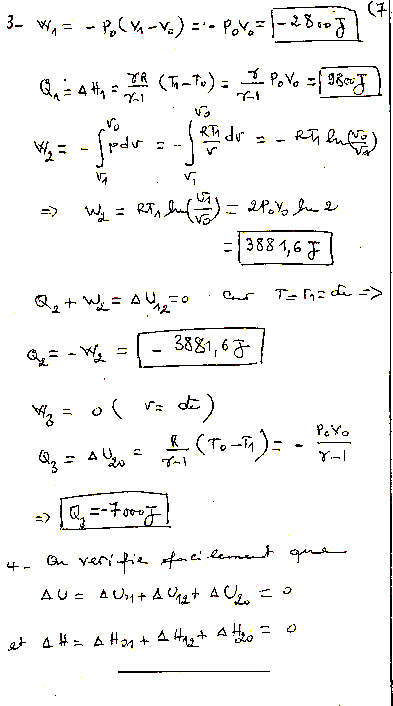 (7
3- W₁ = - P₀(V₁-V₀) = - P₀V₀ = -2800 J
Q₁ = ΔH₁ = γR/γ-1 (T₁-T₀) = γ/γ-1 P₀V₀ = 9800 J
W₂ = - ∫_{V₁}^{V₀} pdv = - ∫_{V₁}^{V₀} RT₁/V dv = - RT₁ ln(V₀/V₁)
=> W₂ = RT₁ ln(V₁/V₀) = 2P₀V₀ ln 2
= 3881,6 J
Q₂ + W₂ = ΔU₁₂ = 0 car T = T₁ = cte =>
Q₂ = - W₂ = - 3881,6 J
W₃ = 0 ( v = cte)
Q₃ = ΔU₂₀ = R/γ-1 (T₀-T₁) = - P₀V₀/γ-1
=> Q₃ = -7000 J
4- On verifie facilement que
ΔU = ΔU₀₁ + ΔU₁₂ + ΔU₂₀ = 0
et ΔH = ΔH₀₁ + ΔH₁₂ + ΔH₂₀ = 0